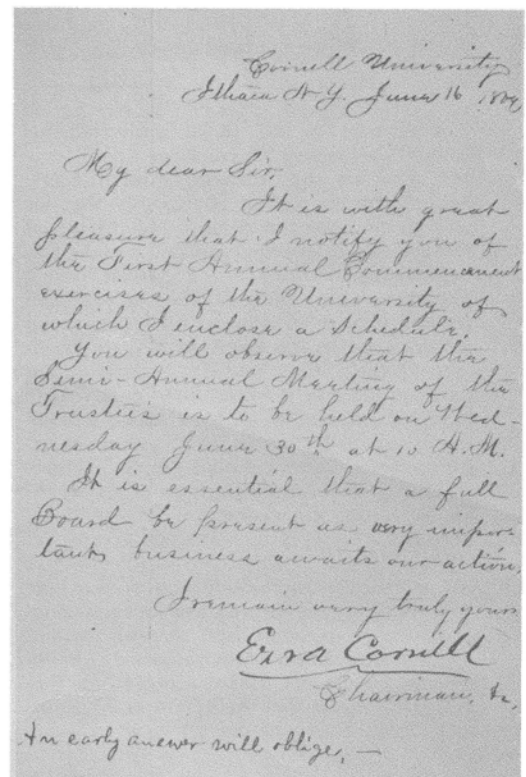 Cornell University
Ithaca N.Y. June 16
My dear Sir,
It is with great
pleasure that I notify you of
the First Annual Commencement
exercises of the University of
which I enclose a Schedule.
You will observe that the
Semi-Annual Meeting of the
Trustees is to be held on Wed-
nesday June 30th at 10 A.M.
It is essential that a full
Board be present as very impor-
tant business awaits our action.
I remain very truly yours
Ezra Cornell
Chairman, &c,
An early answer will oblige, —